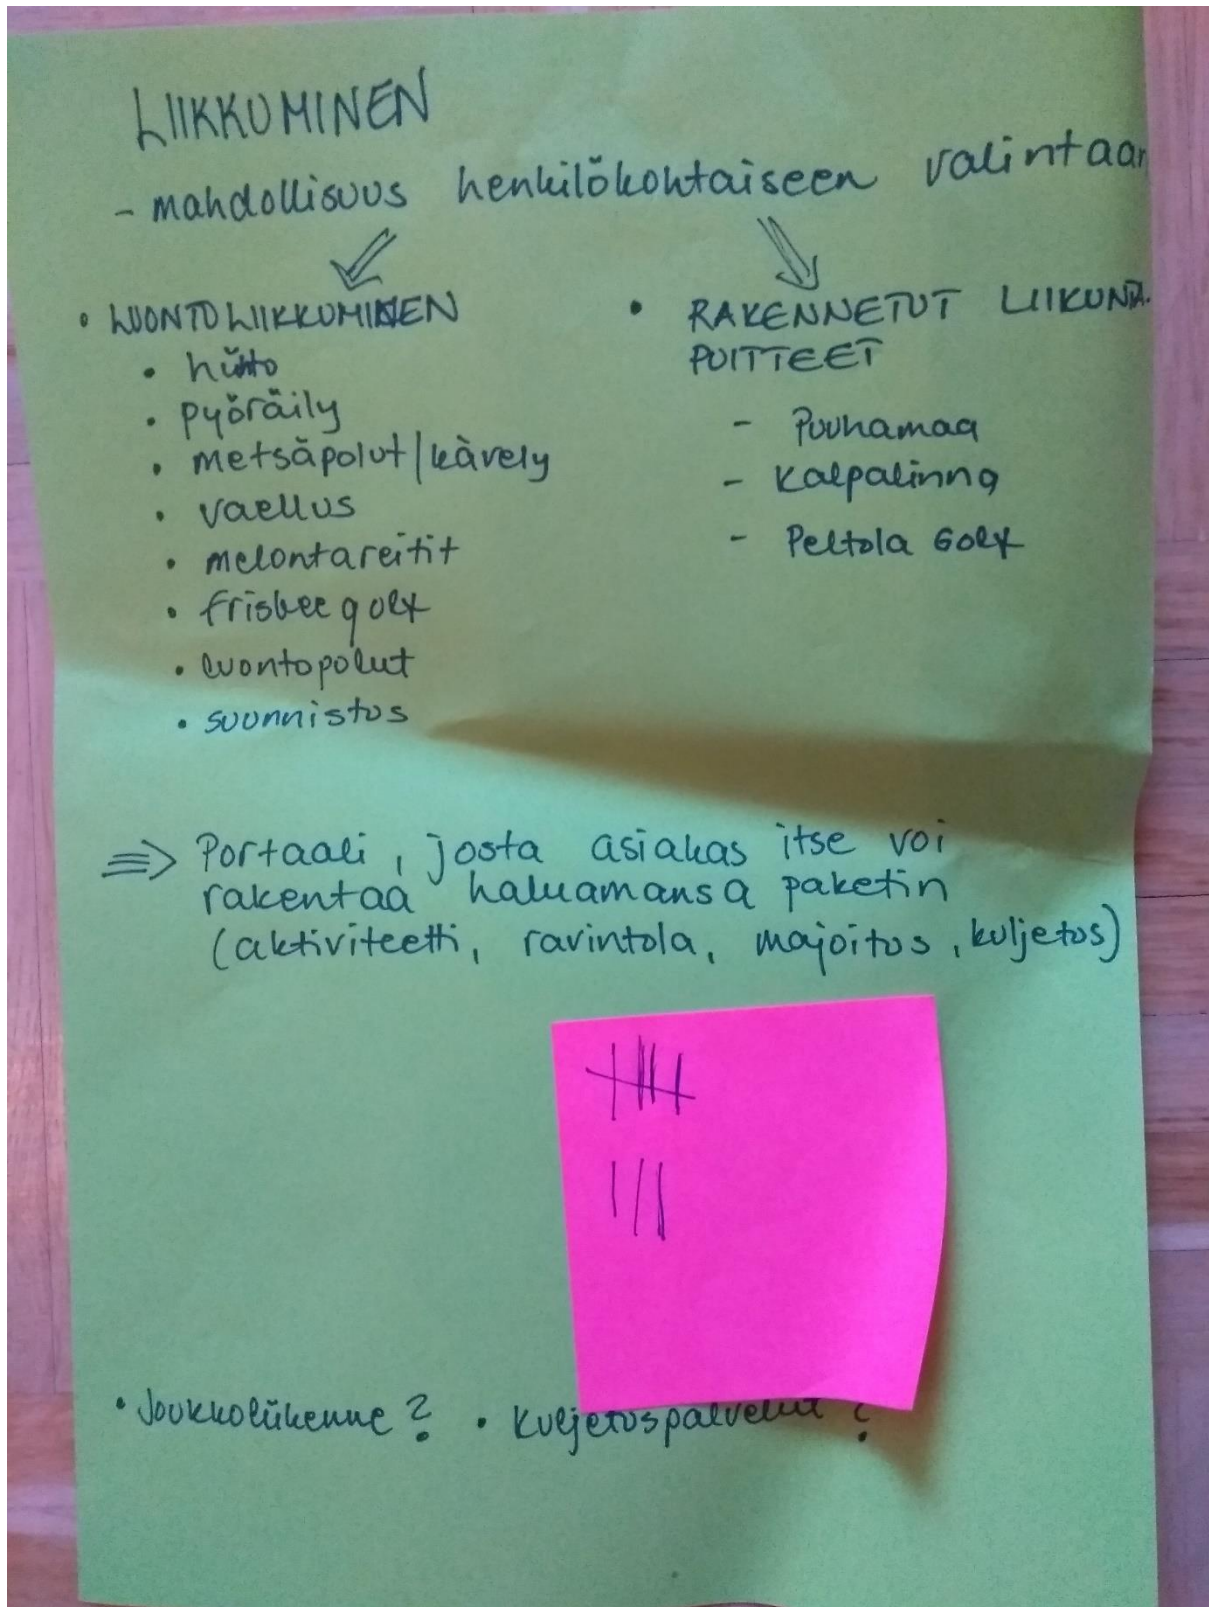 LIIKKUMINEN
- mahdollisuus henkilökohtaiseen valintaan
• LUONTOLIIKKUMINEN
• hiihto
• pyöräily
• metsäpolut/kävely
• vaellus
• melontareitit
• frisbeegolf
• luontopolut
• suunnistus
• RAKENNETUT LIIKUNTA-
PUITTEET
- Puuhamaa
- Kalpalinna
- Peltola Golf
⇒ Portaali, josta asiakas itse voi
rakentaa haluamansa paketin
(aktiviteetti, ravintola, majoitus, kuljetus)
• Joukkoliikenne? • Kuljetuspalvelut?